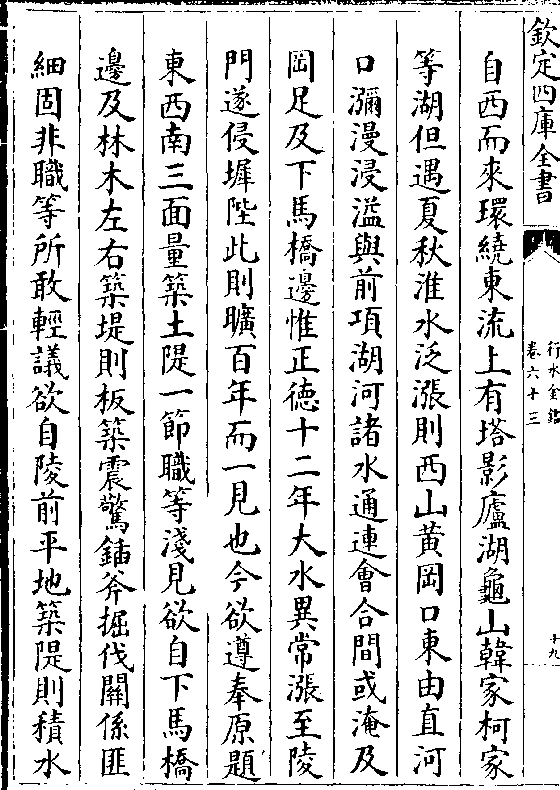 欽定四庫全書
行水金鑑
卷六十三
十九
自西而來環繞東流上有塔影廬湖龜山韓家柯家
等湖但遇夏秋淮水泛漲則西由黄岡口東由直河
口瀰漫浸溢與前項湖河諸水通連會合間或淹及
岡足及下馬橋邊惟正徳十二年大水異常漲至陵
門遂侵墀陛此則曠百年而一見也今欲遵奉原題
東西南三面量築土隄一節職等淺見欲自下馬橋
邊及林木左右築堤則板築震驚鍤斧掘伐關係匪
細固非職等所敢輕議欲自陵前平地築隄則積水